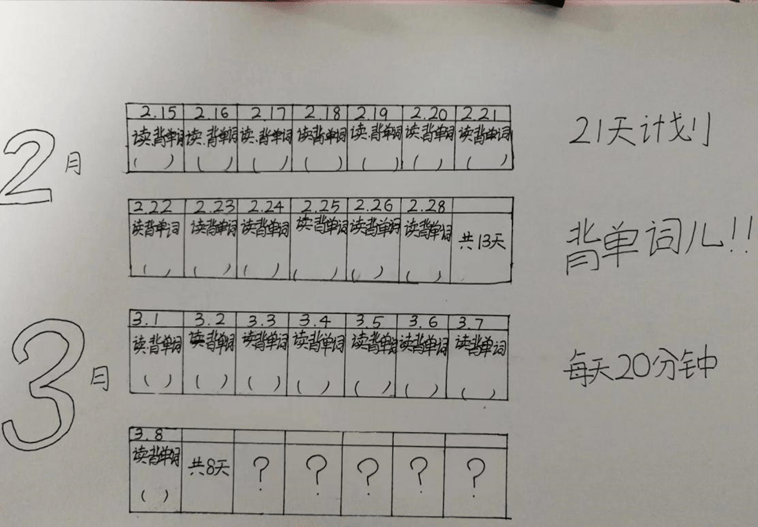 2.15 2.16 2.17 2.18 2.19 2.20 2.21
读.背单词 读.背单词 读.背单词 读.背单词 读.背单词 读.背单词 读.背单词
( ) ( ) ( ) ( ) ( ) ( ) ( )
21天计划
2月
2.22 2.23 2.24 2.25 2.26 2.28
读背单词 读背单词 读背单词 读背单词 读背单词 读背单词 共13天
( ) ( ) ( ) ( ) ( ) ( )
背单词儿!!
3.1 3.2 3.3 3.4 3.5 3.6 3.7
读.背单词 读.背单词 读.背单词 读.背单词 读.背单词 读.背单词 读.背单词
( ) ( ) ( ) ( ) ( ) ( ) ( )
3月
每天20分钟
3.8
读背单词 共8天 ? ? ? ? ?
( )